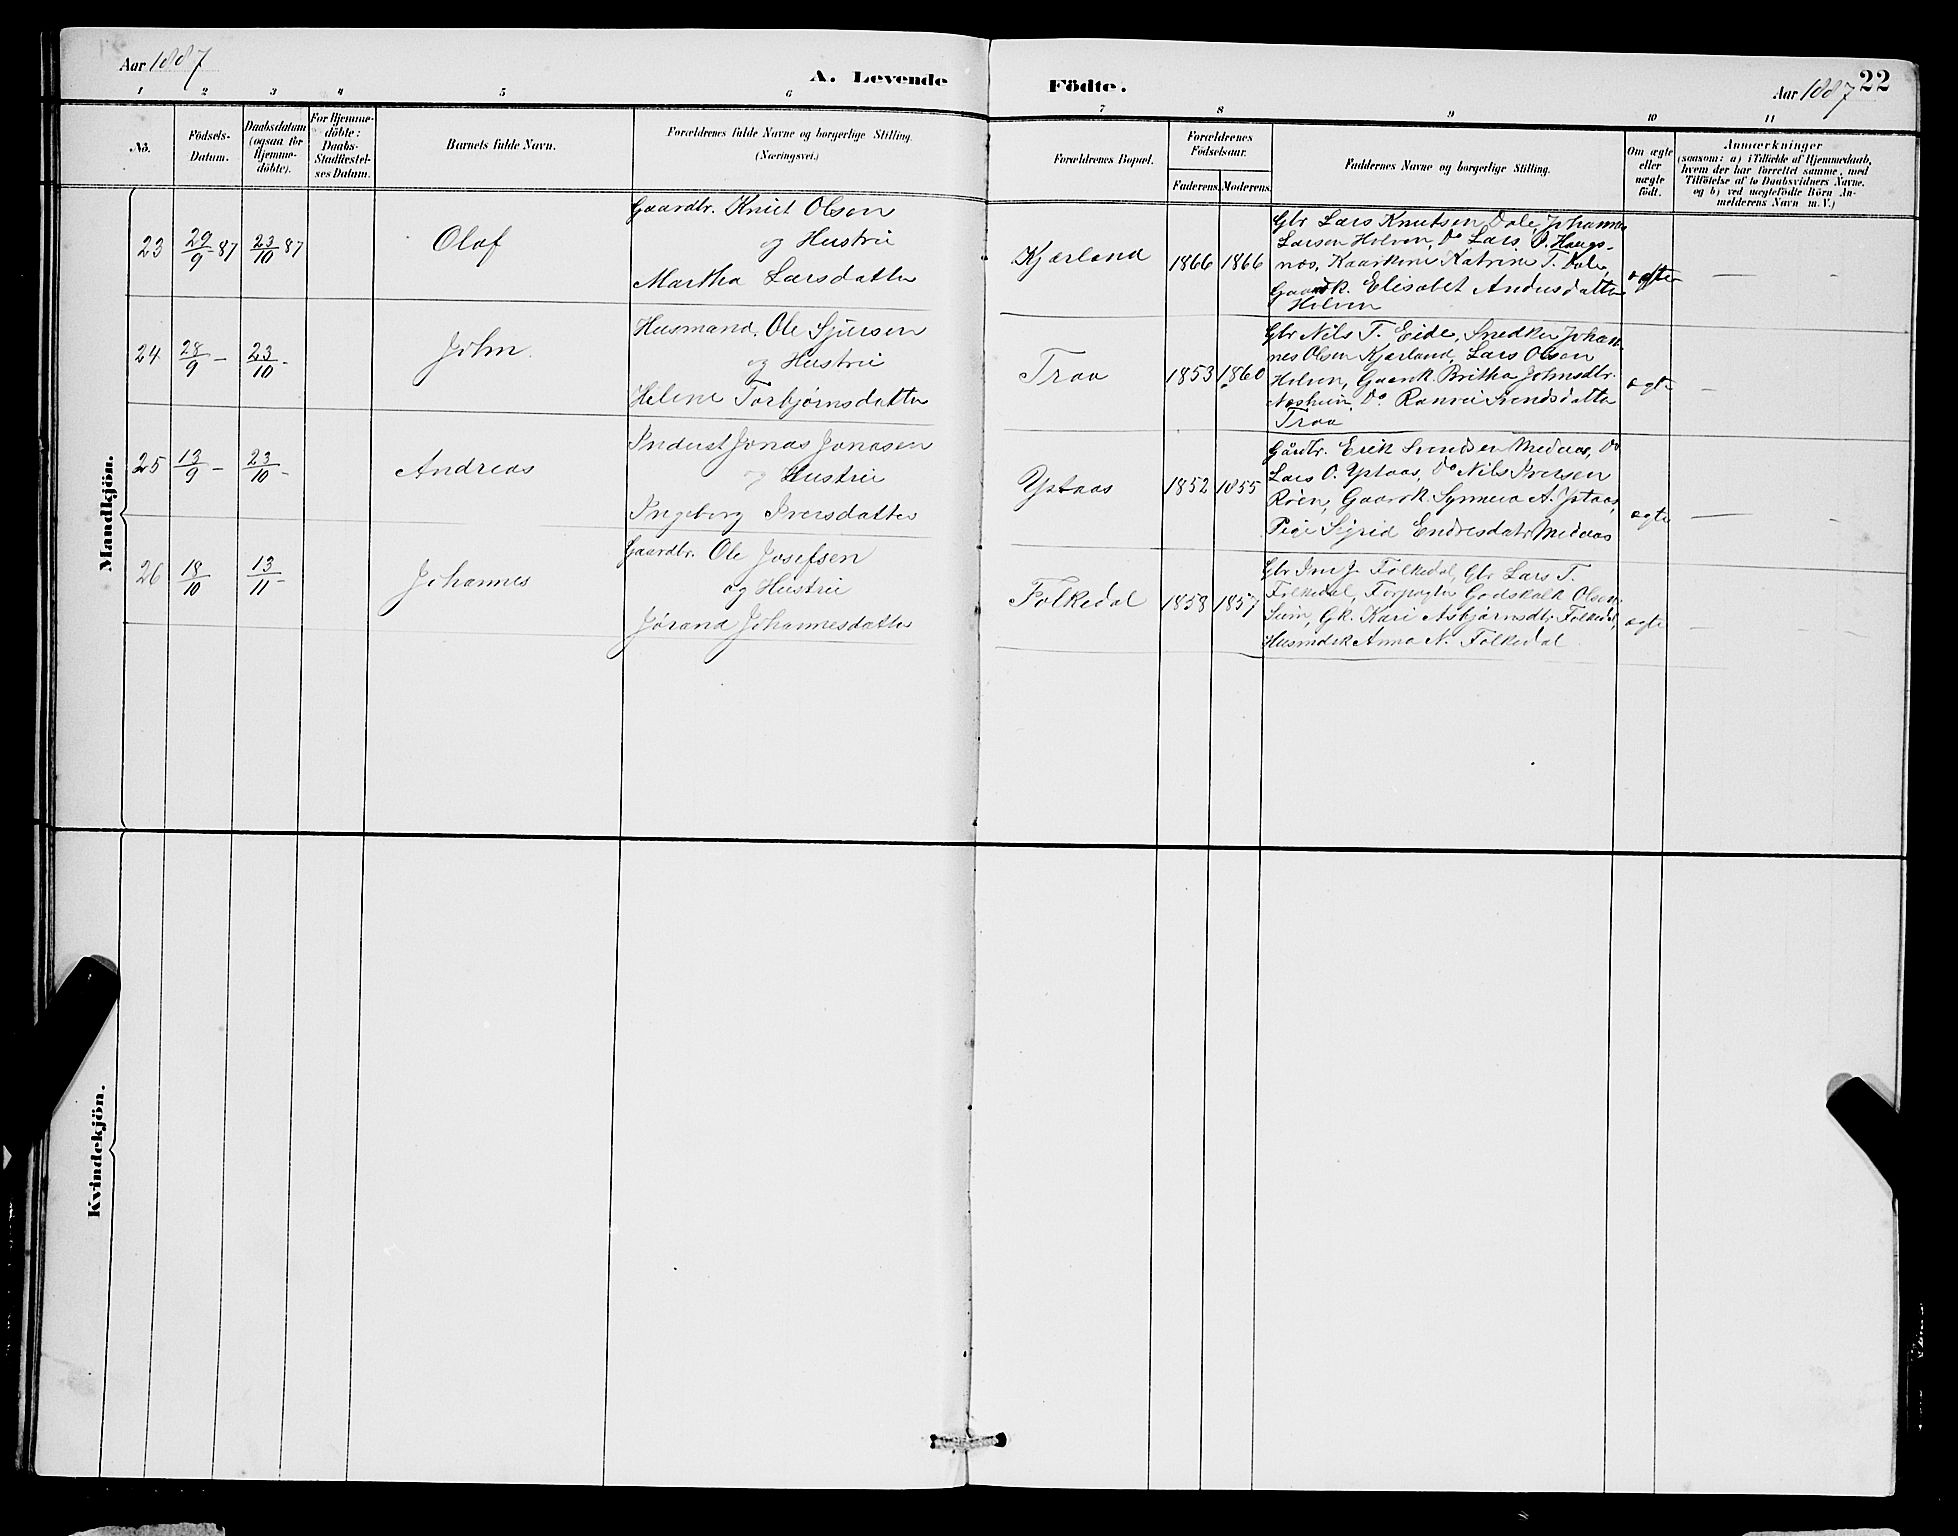 Aar 1887
A. Levende
Födte.
Aar 1887
22
1 2 3 4 5 6 7 8 9 10 11
No.
Födsels-
Datum.
Daabsdatum
(ogsaa for
Hjemme-
döbte).
For Hjemme-
döbte:
Daabs-
Stadfæstel-
ses Datum.
Barnets fulde Navn.
Forældrenes fulde Navne og borgerlige Stilling.
(Næringsvei.)
Forældrenes Bopæl.
Forældrenes
Födselsaar.
Faderens. Moderens.
Faddernes Navne og borgerlige Stilling.
Om ægte
eller
uægte
födt.
Anmærkninger
(saasom: a) i Tilfælde af Hjemmedaab,
hvem der har forrettet samme, med
Tilföielse af to Daabsvidners Navne,
og b) ved uægtefödte Börn An-
melderens Navn m. V.)
Mandkjön.
23 29/9 87 23/10 87 Olaf
Gaardbr. Knut Olsen
og Hustru
Martha Larsdatter
Kjærland 1866 1866
Gbr Lars Knutsen Dale, Johannes
Larsen Holven, Do Lars O. Haugs-
næs, Kaarkone Katrine T. Dale,
Gaardk. Elisabet Andersdatter
Holven
ægte —
24 28/9 – 23/10 – John.
Husmand. Ole Sjursen
og Hustru
Helene Torbjørnsdatter
Traa 1853 1860
Gbr Nils T. Eide, Snedker Johan-
nes Olsen Kjærland, Lars Olsen
Holven, Gaardk. Britha Johnsdtr.
Næsheim, Do Ranvei Svendsdatter
Traa
ægte –
25 13/9 – 23/10 – Andreas
Inderst Jonas Jonasen
og Hustru
Ingeborg Iversdatter
Ystaas 1852 1855
Gårdbr. Erik Svendsen Medaas, Do
Lars O. Ystaas, Do Nils Iversen
Røen, Gaardk. Synneva A. Ystaas,
Pige Sigrid Endresdatr Medaas
ægte —
26 18/10 13/11 – Johannes
Gaardbr. Ole Josefsen
og Hustru
Jørand Johannesdatter
Folkedal 1858 1857
Gbr Iver J. Folkedal, Gbr Lars T.
Folkedal, Forpagter Godskalk Olsen
Seim, Gk. Kari Asbjørnsdtr Folkedal,
Husmdsk Anna N. Folkedal.
ægte –
Kvindekjön.